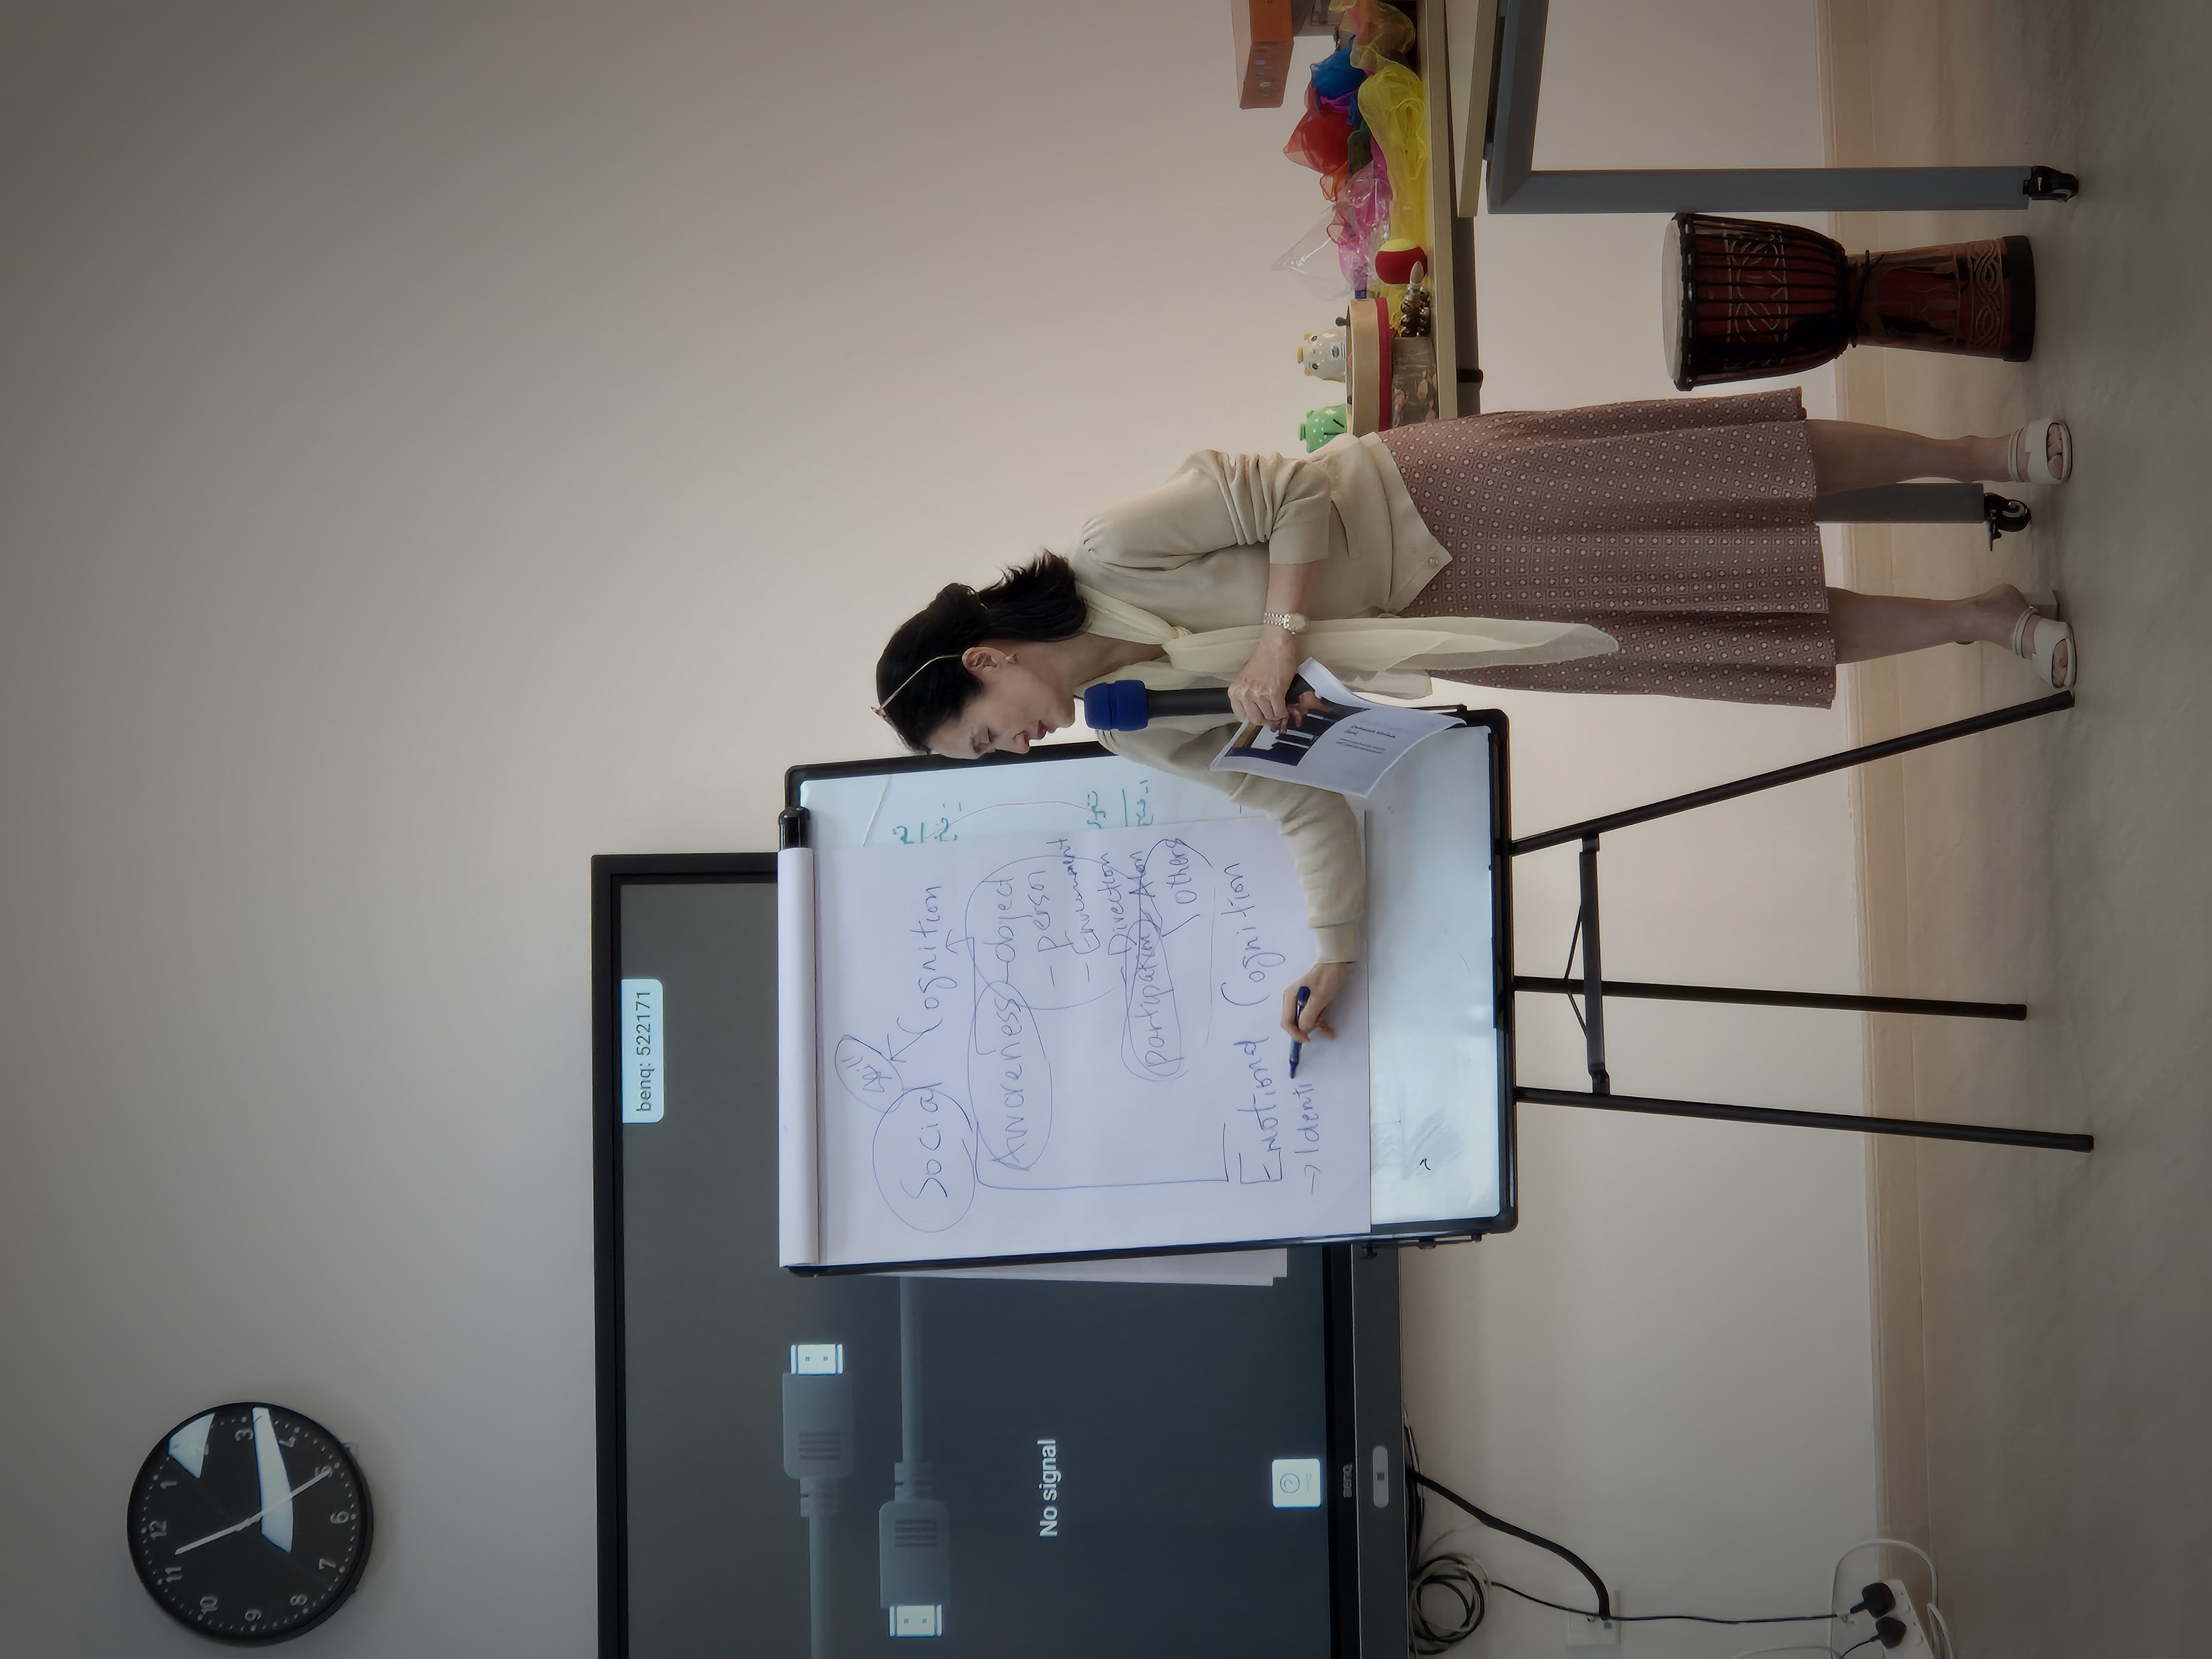 12
11 1
10
9 3
8 4
7 5
6
benq: 522171
No signal
BenQ
Skill
Social Cognition
Awareness - object
- person
- Environment
- Direction
participation Alon
others
Emotional Cognition
→ Identi